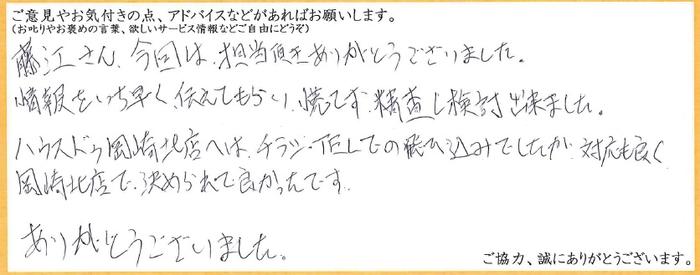 ご意見やお気付きの点、アドバイスなどがあればお願いします。
(お叱りやお褒めの言葉、欲しいサービス情報などご自由にどうぞ)
藤江さん、今回は、担当頂きありがとうございました。
情報をいち早く伝えてもらい、慌てず精査し検討出来ました。
ハウスドゥ岡崎北店へは、チラシ・TELでの飛び込みでしたが、対応も良く
岡崎北店で、決められて良かったです。
ありがとうございました。
ご協力、誠にありがとうございます。